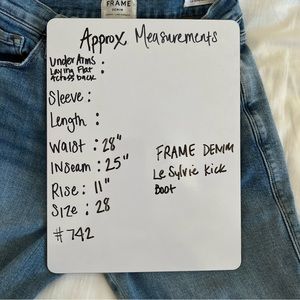 FRAME
DENIM
Approx Measurements
Under Arms
Laying Flat :
Across back
Sleeve :
Length :
Waist : 28"
Inseam : 25"
Rise : 11"
Size : 28
#742
FRAME DENIM
Le Sylvie Kick
Boot